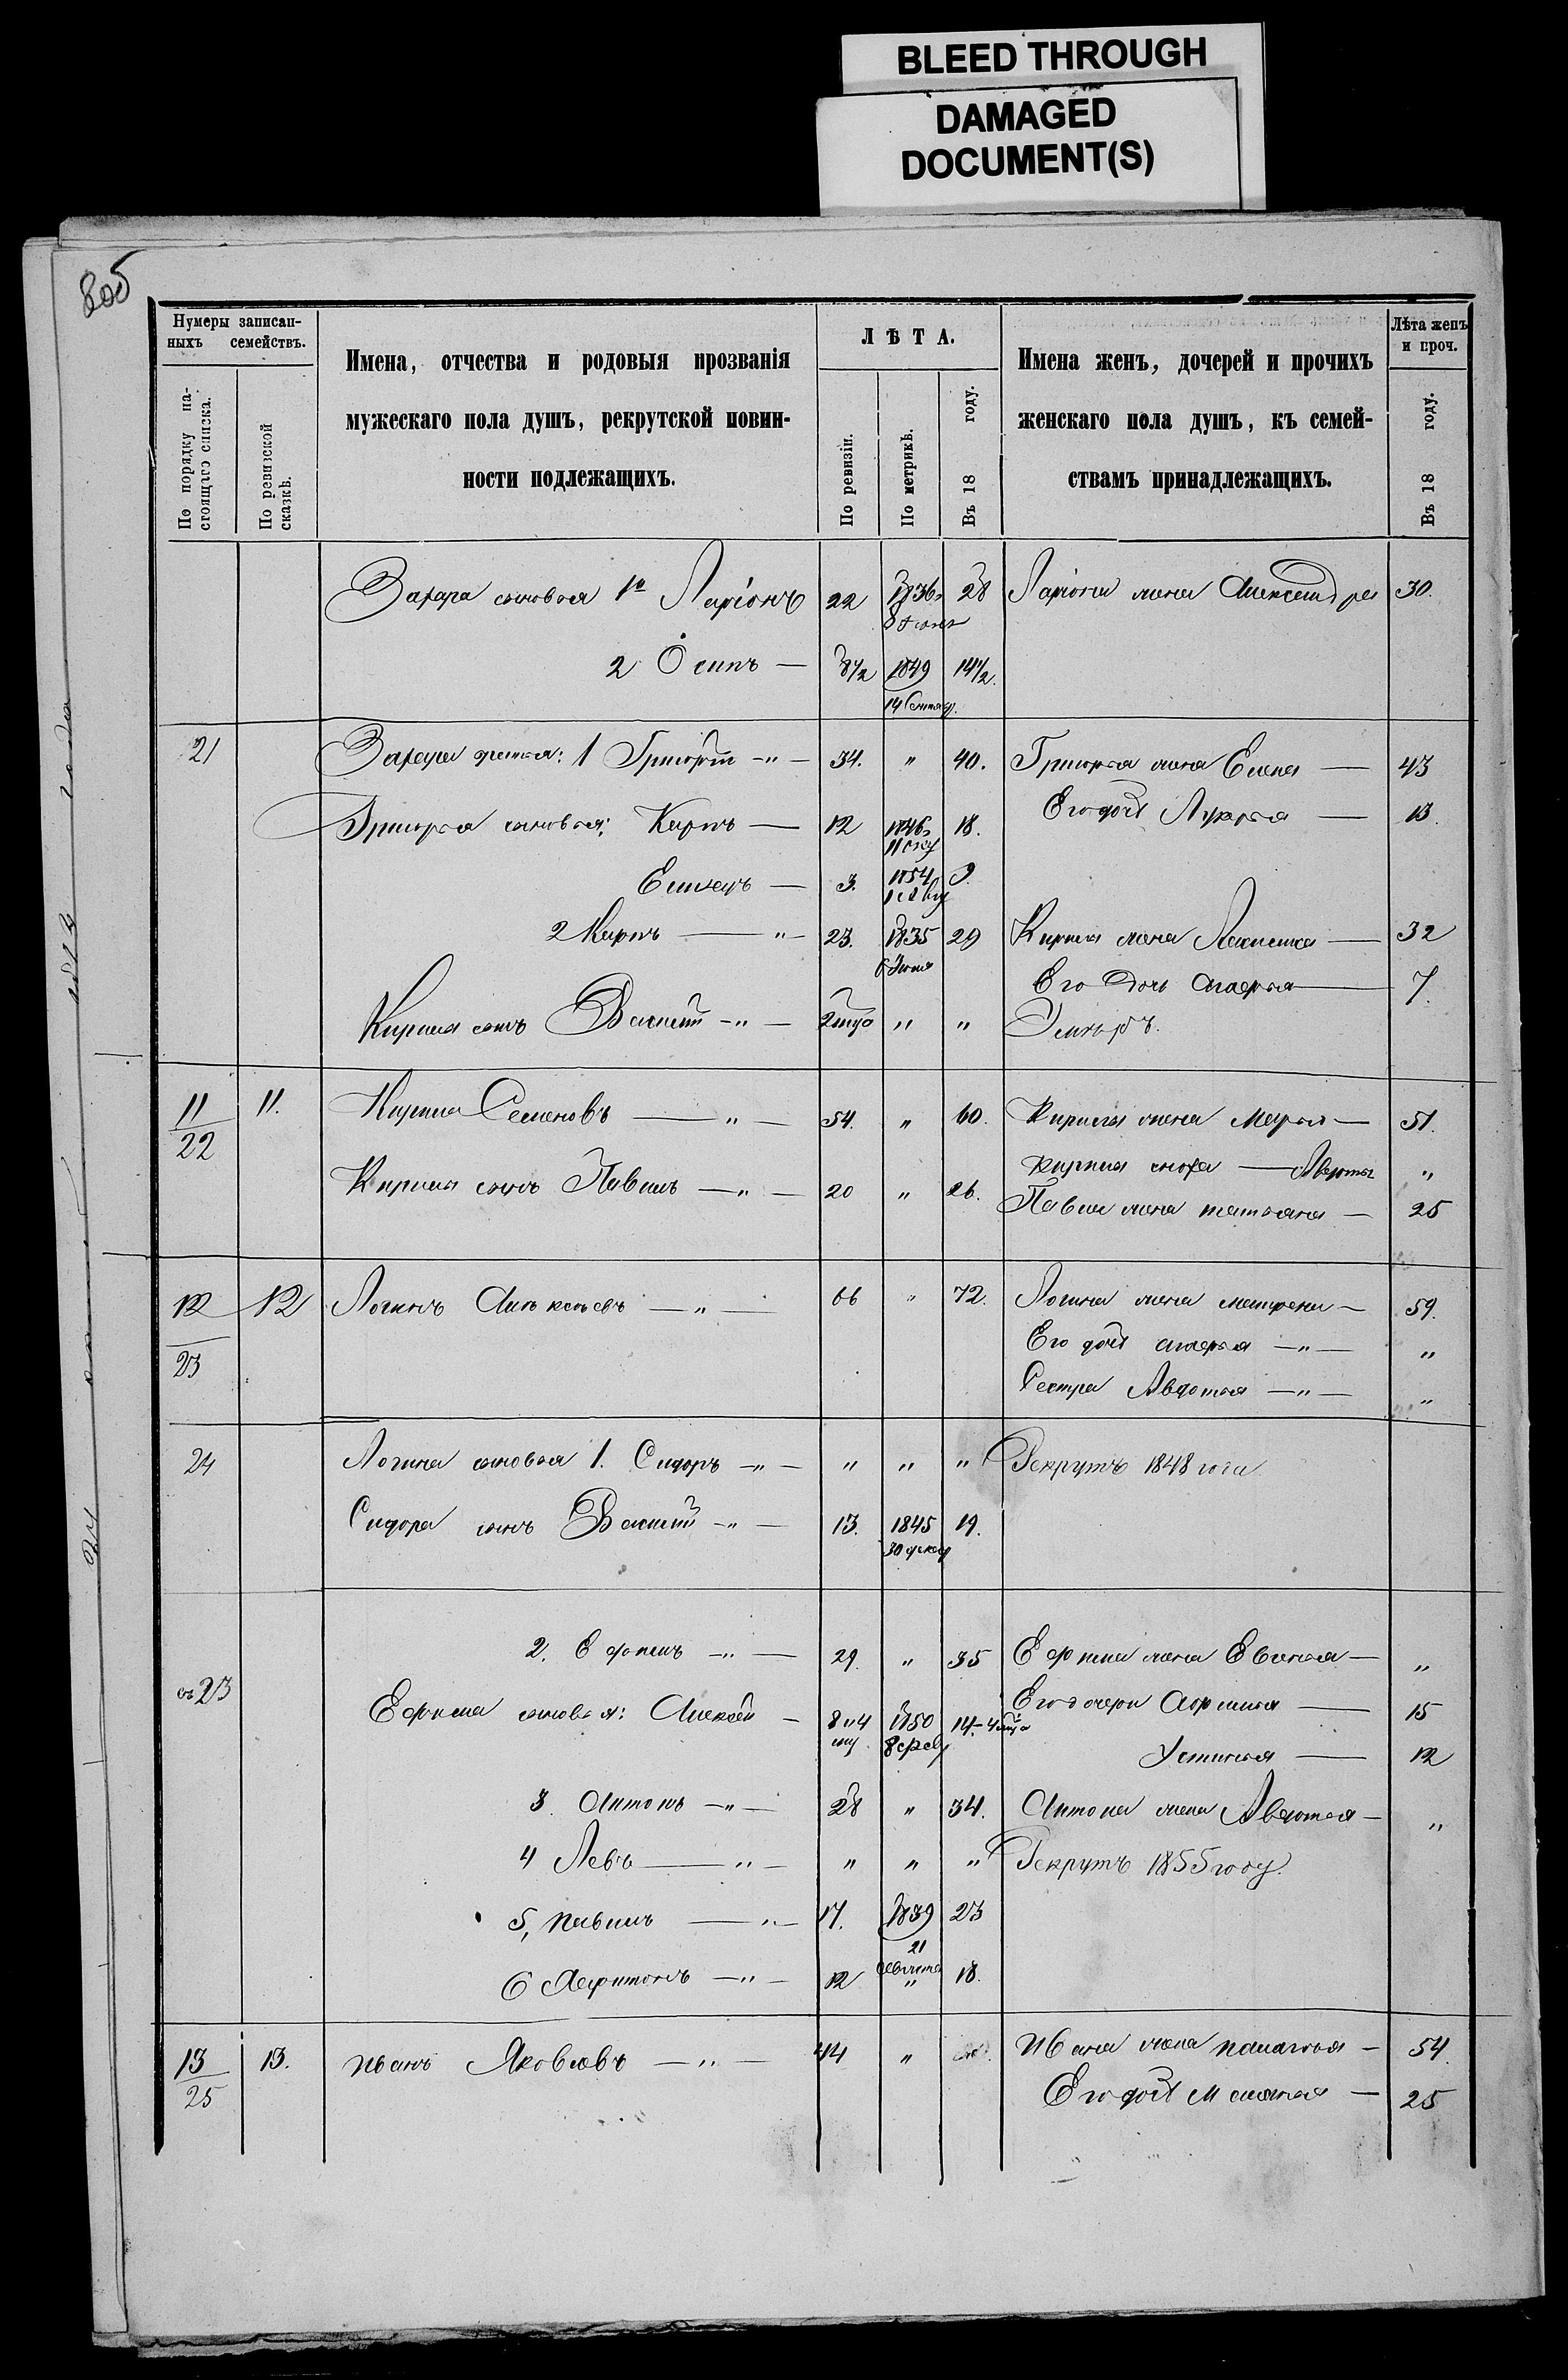 BLEED THROUGH
DAMAGED
DOCUMENT(S)
Нумеры записан-
ныхъ семействъ.
По порядку на-
стоящаго списка.
По ревизской
сказкѣ.
Имена, отчества и родовыя прозванія
мужескаго пола душъ, рекрутской повин-
ности подлежащихъ.
ЛѢТА.
По ревизіи.
По метрикѣ.
Въ 18 году.
Имена женъ, дочерей и прочихъ
женскаго пола душъ, къ семей-
ствамъ принадлежащихъ.
Лѣта женъ
и проч.
Въ 18 году.
Захара сыновья 1й Ларіонъ 22 1836 28 Ларіона жена Александра 30.
8 Іюня
2 Осипъ — 8 1/2 1849 14 1/2.
14 Сентяб.
21 Захара братья: 1 Григорій -"- 34. " 40. Григорья жена Елена — 43
Григорья сыновья: Карпъ — 12 1846 18. Его дочь Лукерья — 13.
3. 1854 9.
2 Карпъ — " — 23. 1835 29 жена — 32
6 Іюня
Его дочь Марья — 7.
сынъ Василій -"- " " Умеръ.
11/22 11. Кирила Семеновъ — " — 54. " 60. Кирилы жена Марья — 51.
Кирилы сноха — Авдотья "
Кирилы сынъ Павелъ — " — 20 " 26. Павла жена Татьяна — 25
12/23 12 Логинъ Алексѣевъ — " — 66 " 72. Логина жена Матрена — 59.
Его дочь Марья — " — "
Сестра Авдотья — " — "
24 Логина сыновья 1. Сидоръ -"- " " " Рекрутъ 1848 года
Сидора сынъ Василій -"- 13. 1845 19.
30 декаб
2. Ефимъ -"- 29. " 35 Ефима жена — "
въ 23 Ефима сыновья: Алексѣй — 8 и 4 1850 14-4 Его дочери — 15
8 февр
Устинья — 12
3. Антонъ -"- 28 " 34. Антона жена Авдотья — "
4 Левъ — " — " " " Рекрутъ 1855 году.
5, Павелъ — " — 17. 1839 23
21
6 Харитонъ — " — 12 " 18.
13/25 13. Иванъ Яковлевъ — " — 44 " Ивана жена Палагѣя — 54.
Его дочь — 25